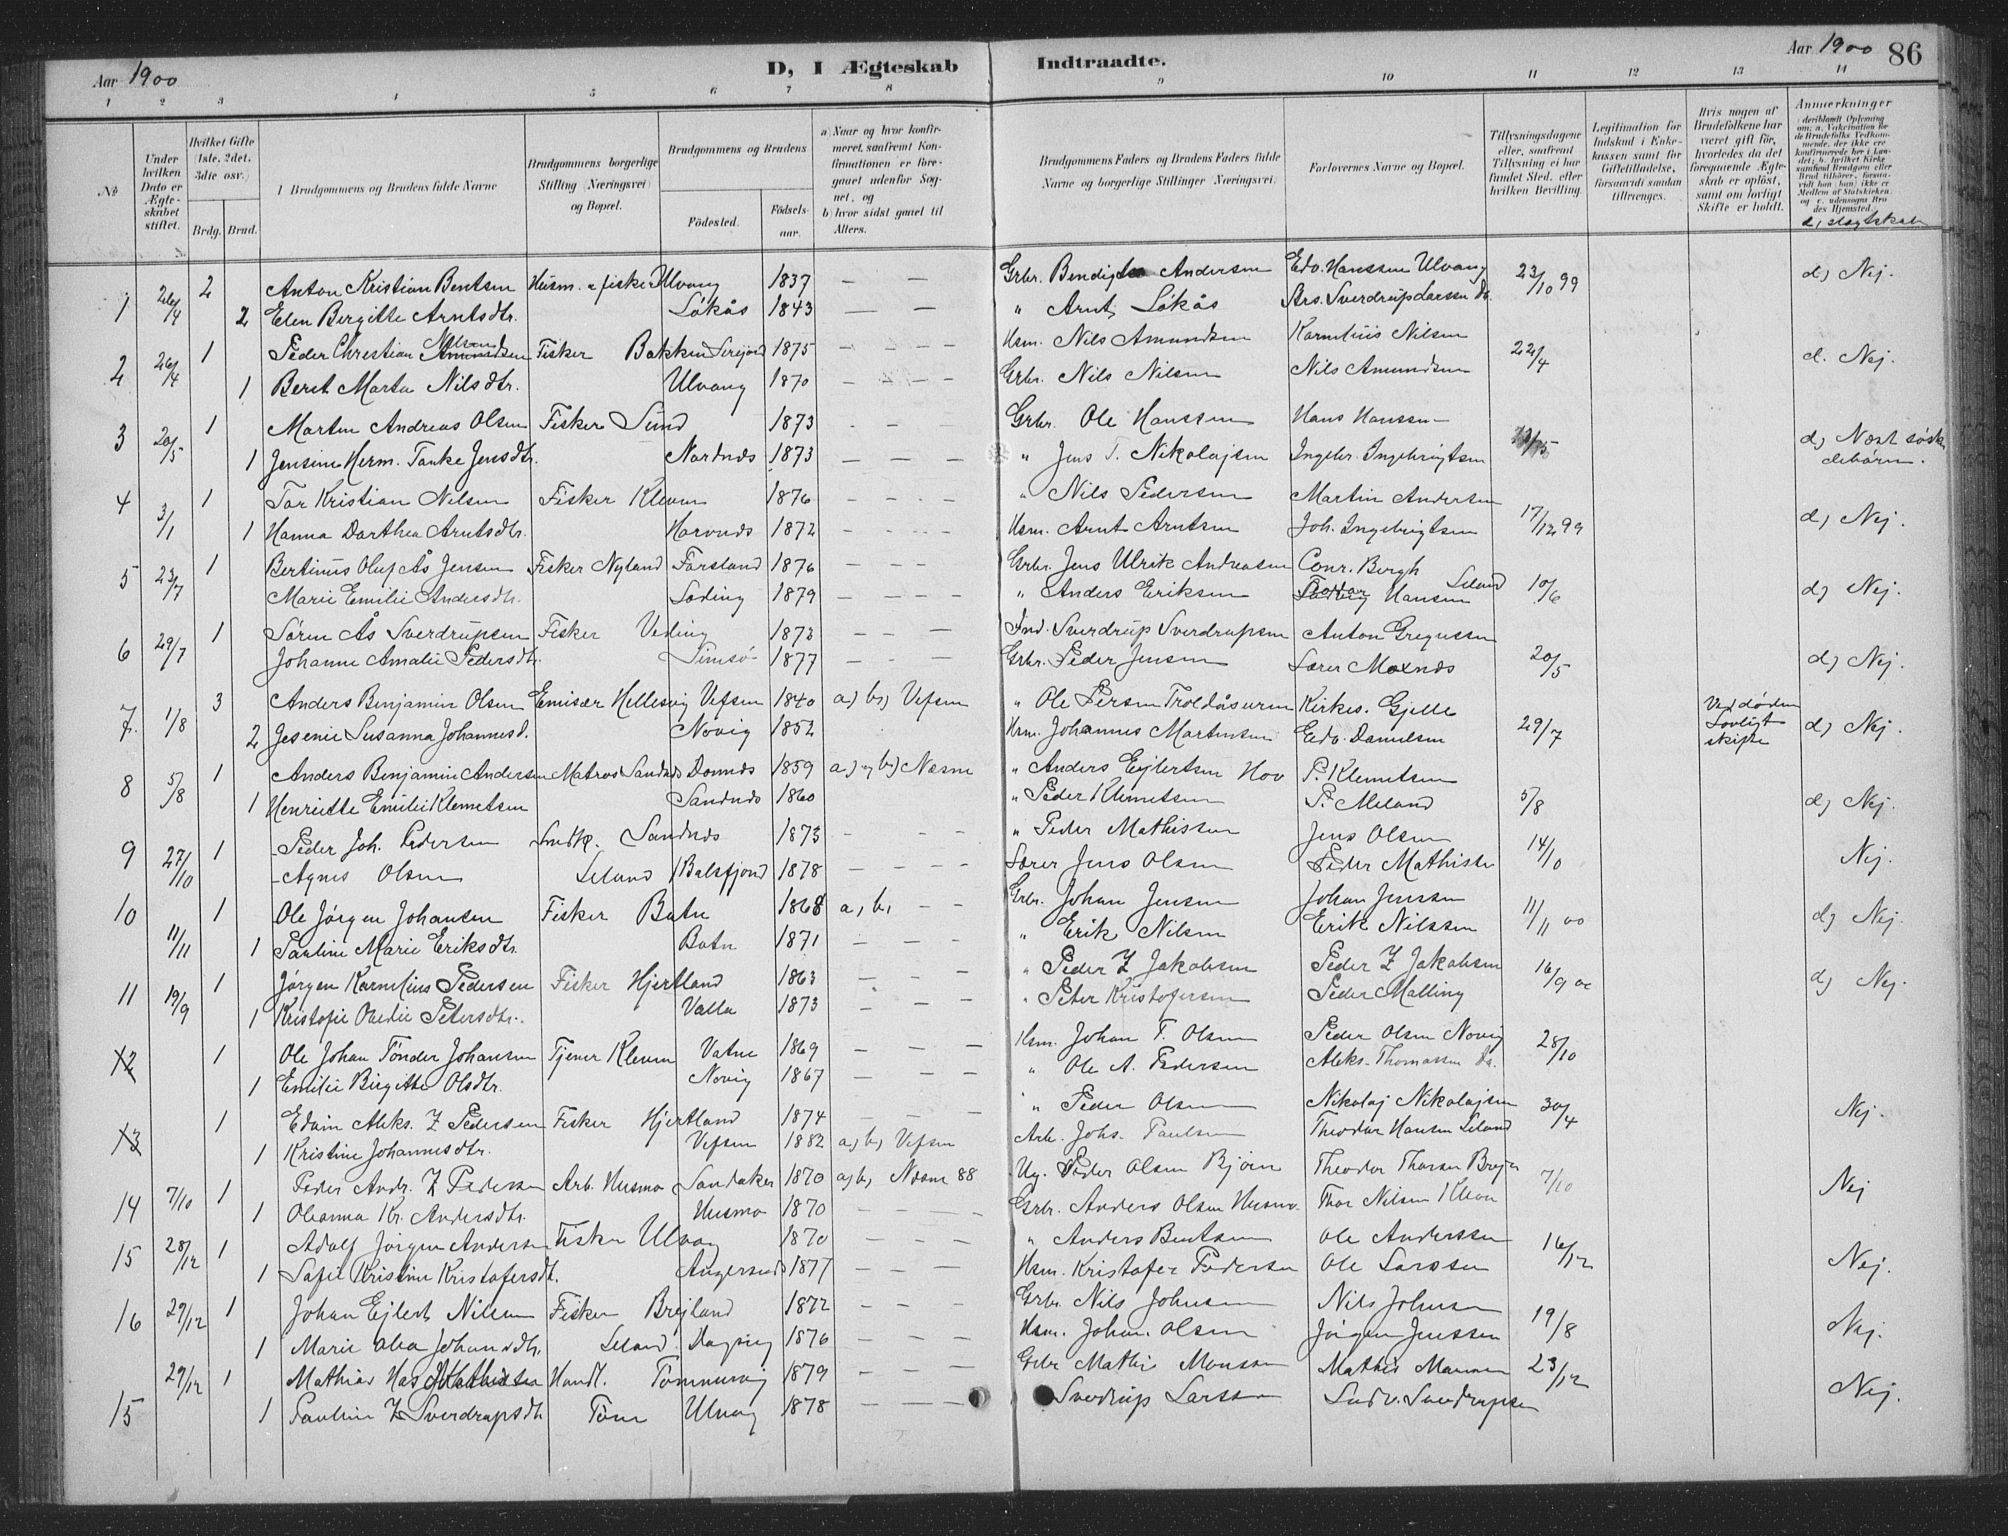 Aar 1900 D, I Ægteskab Indtraadte. Aar 1900 86
1 2 3 4 5 6 7 8 9 10 11 12 13 14
No
Under hvilken Dato er Ægteskabet stiftet.
Hvilket Gifte (1ste, 2det, 3die osv.)
Brdg. Brud.
Brudgommens og Brudens fulde Navne
Brudgommens borgerlige Stilling (Næringsvei) og Bopæl.
Brudgommens og Brudens
Fødested. Fødselsaar.
a) Naar og hvor konfirmeret, saafremt Konfirmationen er foregaaet udenfor Sognet, og
b) hvor sidst gaaet til Alters.
Brudgommens Faders og Brudens Faders fulde Navne og borgerlige Stillinger (Næringsvei).
Forlovernes Navne og Bopæl.
Tillysningsdagene eller, saafremt Tillysning ei har fundet Sted, efter hvilken Bevilling.
Legitimation for Indskud i Enkekassen samt for Giftetilladelse, forsaavidt saadan tiltrænges.
Hvis nogen af Brudefolkene har været gift før, hvorledes da det foregaaende Ægteskab er opløst, samt om lovligt Skifte er holdt.
Anmærkninger
d, slagtskab
1 26/4 2 Anton Kristian Bentsen Husm. & fisker Ulvang 1837 — — Grbr. Andersen Edv. Hanssen Ulvang 23/10 99 d) Nej.
2 Elen Bergitte Arntsdtr. Løkås 1843 — — " Arnt Løkås Ars. Sverdrup Larssen
2 26/4 1 Peder Christian Nilsen Fisker Bakken 1875 — — — — Hsm. Nils Amundsen Kornelius Nilsen 22/4 d. Nej.
1 Berit Marta Nilsdtr. Ulvang 1870 — — — — Grbr. Nils Nilsen Nils Amundsen
3 20/5 1 Martin Andreas Olsen Fisker Sund 1873 - — Grbr. Ole Hanssen Hans Hanssen d) Næst søsk
1 Jensine Herm. Tanke Jensdtr. Nordnæs 1873 - - — " Jens T. Nikolajsen Ingebr. Ingebrigtsen debørn.
4 3/1 1 Tor Kristian Nilsen Fisker Kleven 1876 — — — — " Nils Pedersen Martin Andersen 17/12 99 d) Nej.
1 Hanna Dorthea Arntsdtr. 1872 - - - - Hsm. Arnt Arntsen Joh. Ingebrigtsen
5 23/7 1 Bertinus Oluf Ås Jensen Fisker Nyland Forsland 1876 — — — — Grbr. Jens Ulrik Andreassen Conr. Bergh 10/6 d) Nej.
Marie Emilie Andersdtr. Søding 1879 — — — — " Anders Eriksen Hansen Leland
6 29/7 1 Søren Ås Sverdrupsen Fisker Veding 1873 — — — Ind. Sverdrup Sverdrupsen Anton Gregussen 20/5 d) Nej.
Johanne Amalie Pedersdtr. 1877 — - — Grbr. Peder Jensen Lærer Moxnæs
7. 1/8 3 Anders Benjamin Olsen Emisær Hellesvig Vefsen 1840 a) b) Vefsen " Ole Persen Troldåsuren Kirkes. Gjelle 29/7 Ved døden Lovligt skifte d) Nej.
2 Jesenie Susanna Johannesd. Novig 1852 Hsm. Johannes Martinsen Edv. Danielsen
8 5/8 1 Anders Benjamin Andersen Matros Sandnæs Dønnæs 1859 a) og b) Næsne " Anders Ejlertsen Hov P. Klemetsen 5/8 d) Nej.
1 Henriette Emilie Klemetsen Sandnæs 1860 " Peder Klemetsen P. Meland
9 27/10 1 Peder Joh. Pedersen Sandnæs 1873 — — — " Peder Mathissen Jens Olsen 14/10 Nej.
Agnes Olsen Leland Balsfjord 1878 — — — — Lærer Jens Olsen Peder Mathisen
10 11/11 1 Ole Jørgen Johansen Fisker Botn 1868 a, b, — — Grbr. Johan Jensen Johan Jenssen 11/11 00 d) Nej.
1 Pauline Marie Eriksdtr. Botn 1871 — — — " Erik Nilsen Erik Nilssen
11 19/9 1 Jørgen Kornelius Pedersen Fisker Hjertland 1863 — — — " Peder Z Jakobsen Peder Z Jakobsen 16/9 00 d) Nej.
1 Kristofie Petersdtr. Valla 1873 — — — " Peter Kristofersen Peder Malling
12 1 Ole Johan Tønder Johansen Tjener Kleven Vatne 1869 — — — Hsm. Johan T. Olsen Peder Olsen Novig 28/10
1 Emilie Birgitte Olsdtr. Novig 1867 — — — " Ole A. Pedersen Aleks. Thomassen
13 1 Edvin Aleks. Z Pedersen Fisker Hjertland 1874 — — — — " Peder Olsen Nikolaj Nikolajsen 30/4 Nej.
1 Kristine Johannesdtr. Vefsen 1882 a, b, Vefsen Arb. Johs. Paulsen Theodor Hansen Leland
14 7/10 1 Peder Andr. Z Pedersen Arb. Husmo Sandaker 1870 a, b, Næsne 88 Peder Olsen Bjørn Theodor 7/10 Nej
1 Oleanna Kr. Andersdtr. Husmo 1870 — — — — Grbr. Anders Olsen Husmo. Thor Nilsen
15 28/12 1 Adolf Jørgen Andersen Fisker Ulvang 1870 — — — " Anders Bentsen Ole Anderssen 16/12 Nej.
1 Sofie Kristine Kristofersdt. Angersund 1877 — — — Hsm. Kristofer Pedersen Ole Larssen
16 29/12 1 Johan Ejlert Nilsen Fisker Brejland 1872 — — — Grbr. Nils Johnsen Nils Johnsen 19/8 Nej.
1 Marie Johansdtr. Leland 1876 — — — Hsm. Johan Olsen Jørgen Jenssen
29/12 1 Mathias Handl. Tømmervig 1879 — — — Grbr Mathis Monssen Mathis 23/12
15 1 Pauline Z Sverdrupsdtr Ulvang 1878 — — — Sverdrup Larssen Ludv. Sverdrupsen Nej.